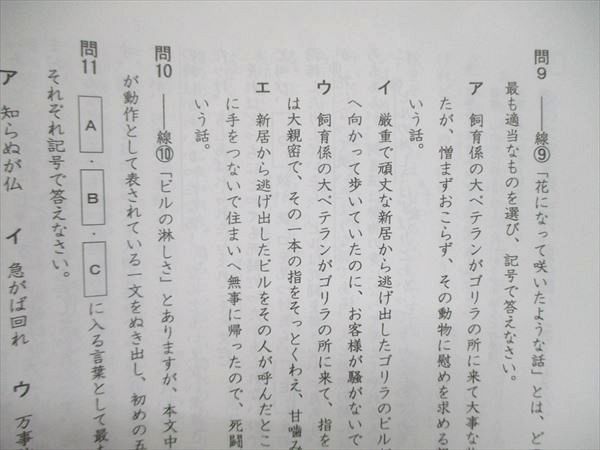 問9 ――線⑨「花になって咲いたような話」とは、ど
最も適当なものを選び、記号で答えなさい。
ア 飼育係の大ベテランがゴリラの所に来て大事な
たが、憎まずおこらず、その動物に慰めを求める
いう話。
イ 厳重で頑丈な新居から逃げ出したゴリラのビルが
へ向かって歩いていたのに、お客様が騒がないで
ウ 飼育係の大ベテランがゴリラの所に来て、指を
は大親密で、その一本の指をそっとくわえ、甘噛み
エ 新居から逃げ出したビルをその人が呼んだとこ
に手をつないで住まいへ無事に帰ったので、死闘
いう話。
問10 ――線⑩「ビルの淋しさ」とありますが、本文中
が動作として表されている一文をぬき出し、初めの五
問11 A・B・Cに入る言葉として最も
それぞれ記号で答えなさい。
ア 知らぬが仏 イ 急がば回れ ウ 万事